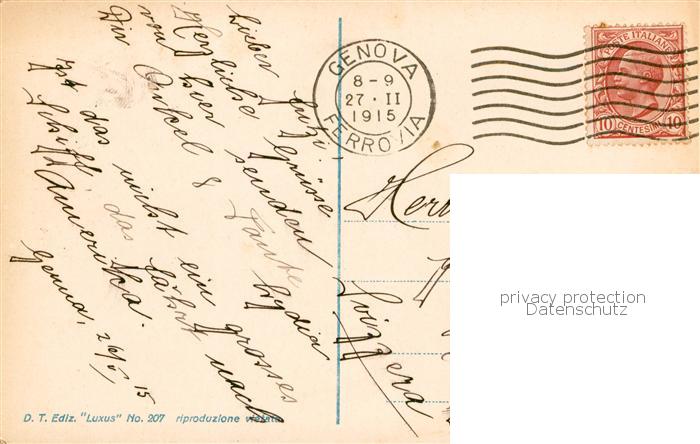 Lieber Fritzi.
Herzliche Grüsse
von hier senden
Dir Onkel & Tante Lydia
Ist das nicht ein grosses
Schiff, das fährt nach
Amerika.
Genua, 26/II 15
GENOVA
8-9
27·II
1915
FERROVIA
POSTE ITALIANE
10 CENTESIMI 10
Herr
Svizzera
privacy protection
Datenschutz
D. T. Ediz. "Luxus" No. 207 riproduzione vietata